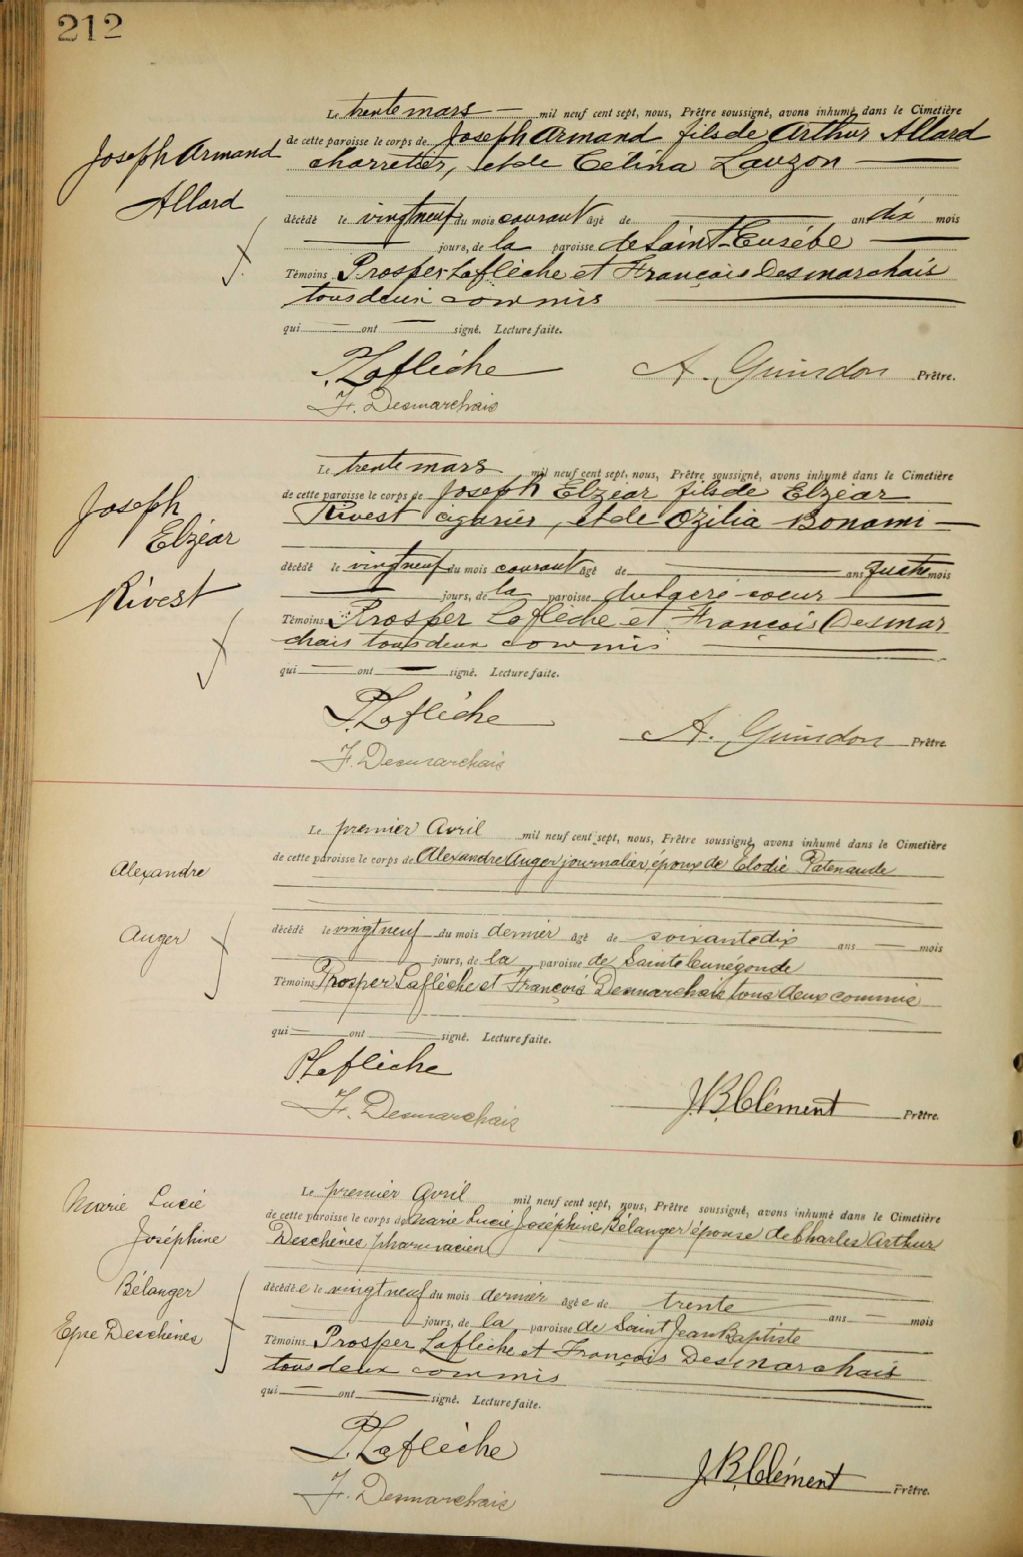 212
Le trente mars mil neuf cent sept, nous, Prêtre soussigné, avons inhumé dans le Cimetière
Joseph Armand
de cette paroisse le corps de Joseph Armand fils de Arthur Allard
charretier, et de Célina Lauzon
Allard
décédé le vingt neuf du mois courant âgé de ans dix mois
jours, de la paroisse de Saint-Eusébe
Témoins Prosper Laflèche et François Desmarchais
tous deux commis
qui ont signé. Lecture faite.
P. Laflèche A. Guindon Prêtre.
F. Desmarchais
Le trente mars mil neuf cent sept, nous, Prêtre soussigné, avons inhumé dans le Cimetière
Joseph
de cette paroisse le corps de Joseph Elzéar fils de Elzéar
Elzéar
Rivest cigarier, et de Ozilia Bonami
décédé le vingt neuf du mois courant âgé de ans quatre mois
Rivest
jours, de la paroisse du Sacré-coeur
Témoins Prosper Laflèche et François Desmar
chais tous deux commis
qui ont signé. Lecture faite.
P. Laflèche A. Guindon Prêtre
F. Desmarchais
Le premier Avril mil neuf cent sept, nous, Prêtre soussigné, avons inhumé dans le Cimetière
Alexandre
de cette paroisse le corps de Alexandre Auger journalier, époux de Elodie Patenaude
Auger
décédé le vingt neuf du mois dernier âgé de soixante dix ans mois
jours, de la paroisse de Sainte Cunégonde
Témoins Prosper Laflèche et François Desmarchais tous deux commis
qui ont signé. Lecture faite.
P. Laflèche
F. Desmarchais J. B. Clément Prêtre.
Le premier Avril mil neuf cent sept, nous, Prêtre soussigné, avons inhumé dans le Cimetière
Marie Lucie
de cette paroisse le corps de Marie Lucie Joséphine Bélanger épouse de Charles Arthur
Joséphine
Deschênes, pharmacien
Bélanger
décédée le vingt neuf du mois dernier âgée de trente ans mois
Epse Deschênes
jours, de la paroisse de Saint Jean Baptiste
Témoins Prosper Laflèche et François Desmarchais
tous deux commis
qui ont signé. Lecture faite.
P. Laflèche
F. Desmarchais J. B. Clément Prêtre.